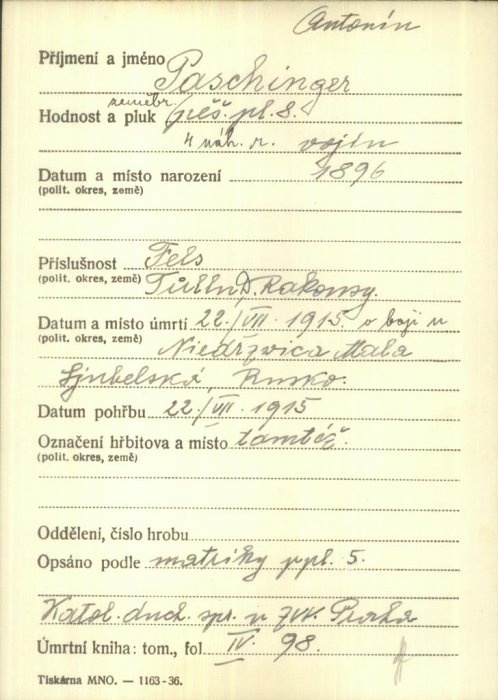 Antonín
Příjmení a jméno Paschinger
zeměbr.
Hodnost a pluk pěš. pl. 8.
4 náh. r. vojín
Datum a místo narození 1896
(polit. okres, země)
Příslušnost Fels
(polit. okres, země) Tulln, D. Rakousy.
Datum a místo úmrtí 22./VII. 1915. v boji u
(polit. okres, země) Niedržwica Mala
Ljubelská, Rusko.
Datum pohřbu 22./VII. 1915
Označení hřbitova a místo tamtéž.
(polit. okres, země)
Oddělení, číslo hrobu
Opsáno podle matriky ppl. 5.
Katol. duch. spr. u ZVV. Praha
Úmrtní kniha: tom., fol IV. 98.
Tiskárna MNO. — 1163-36.